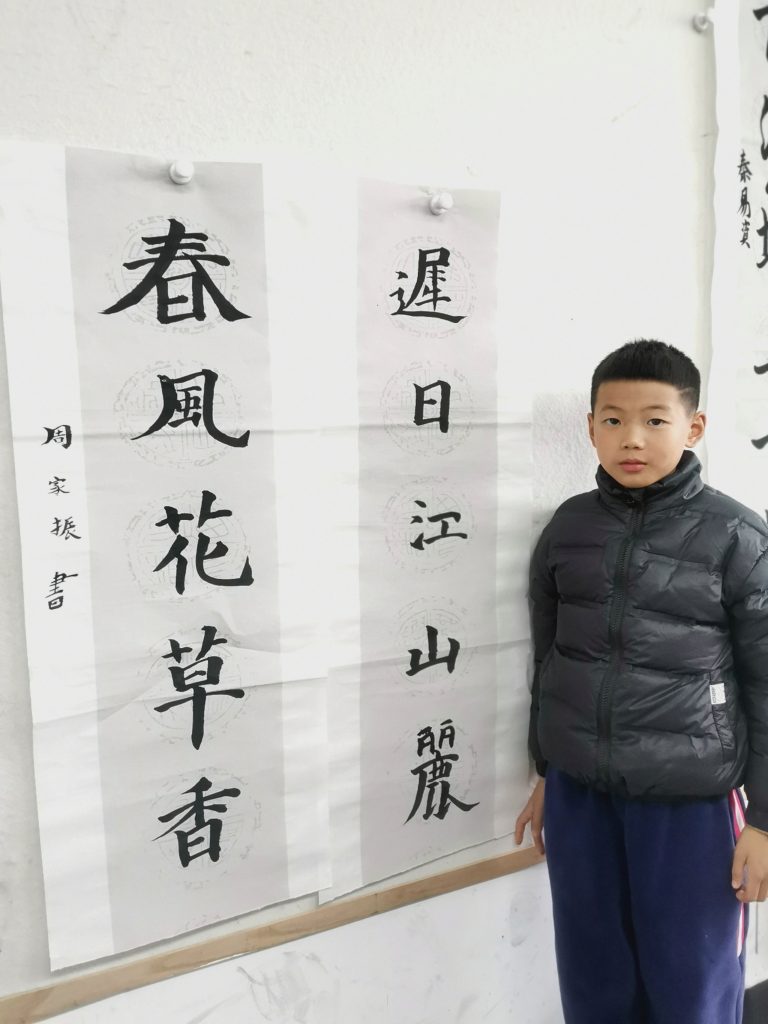 遲日江山麗
春風花草香
周家振書
秦易資